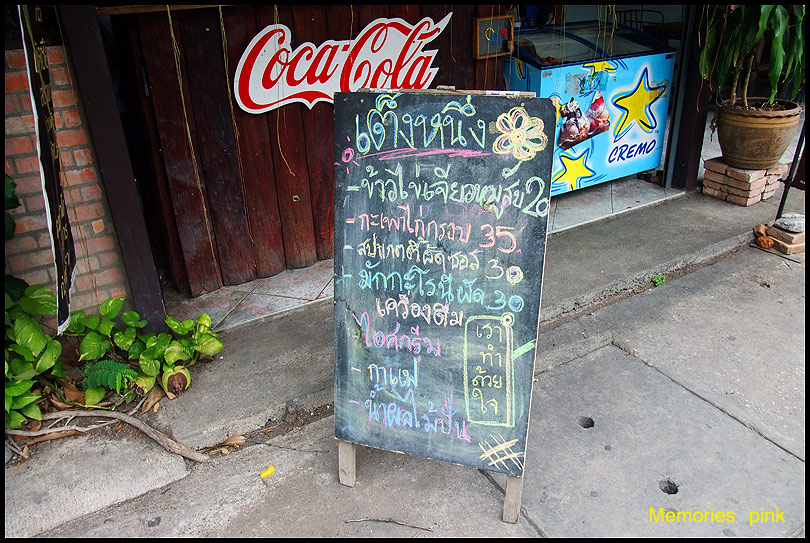 Coca-Cola
CREMO
เต็งหนึ่ง
- ข้าวไข่เจียวหมูสับ 20
- กะเพาไก่กรอบ 35
- สปาเกตตี้ผัดซอส 30
- มักกะโรนีผัด 30
เครื่องดื่ม
ไอศกรีม
- กาแฟ
- น้ำผลไม้ปั่น
เรา
ทำ
ด้วย
ใจ
Memories pink